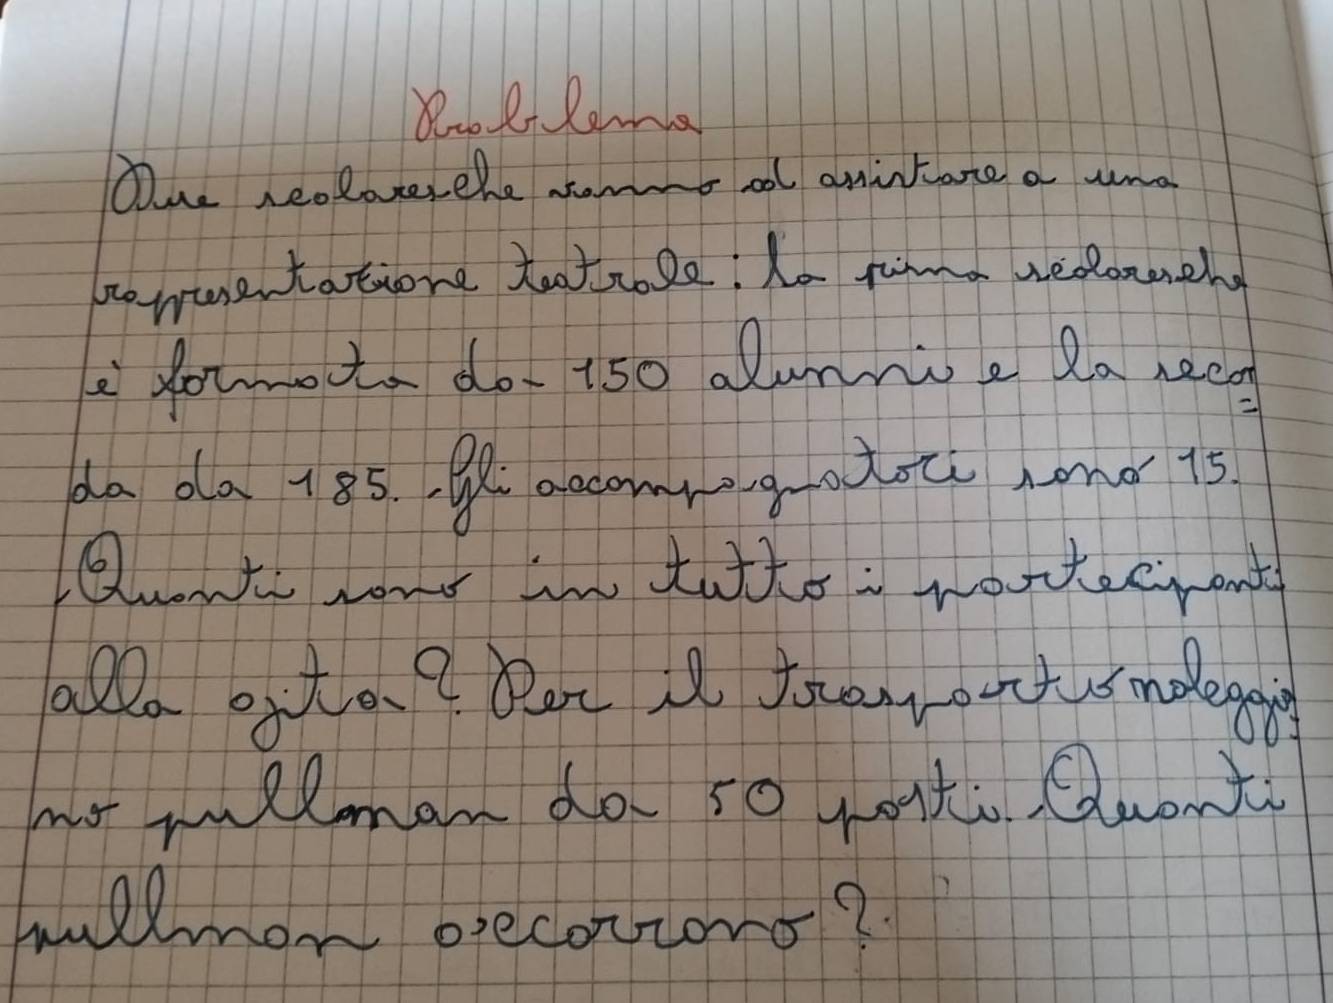 Problema
Due scolaresche vanno ad assistere a una
rappresentazione teatrale: la prima scolaresche
è formata da 150 alunni e la secon
da da 185. Gli accompagnatori sono 15.
Quanti sono in tutto i partecipanti
alla gita? Per il trasporto noleggia
no pullman da 50 posti. Quanti
pullman occorrono?